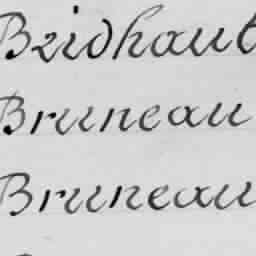 Bridhaut
Bruneau
Bruneau